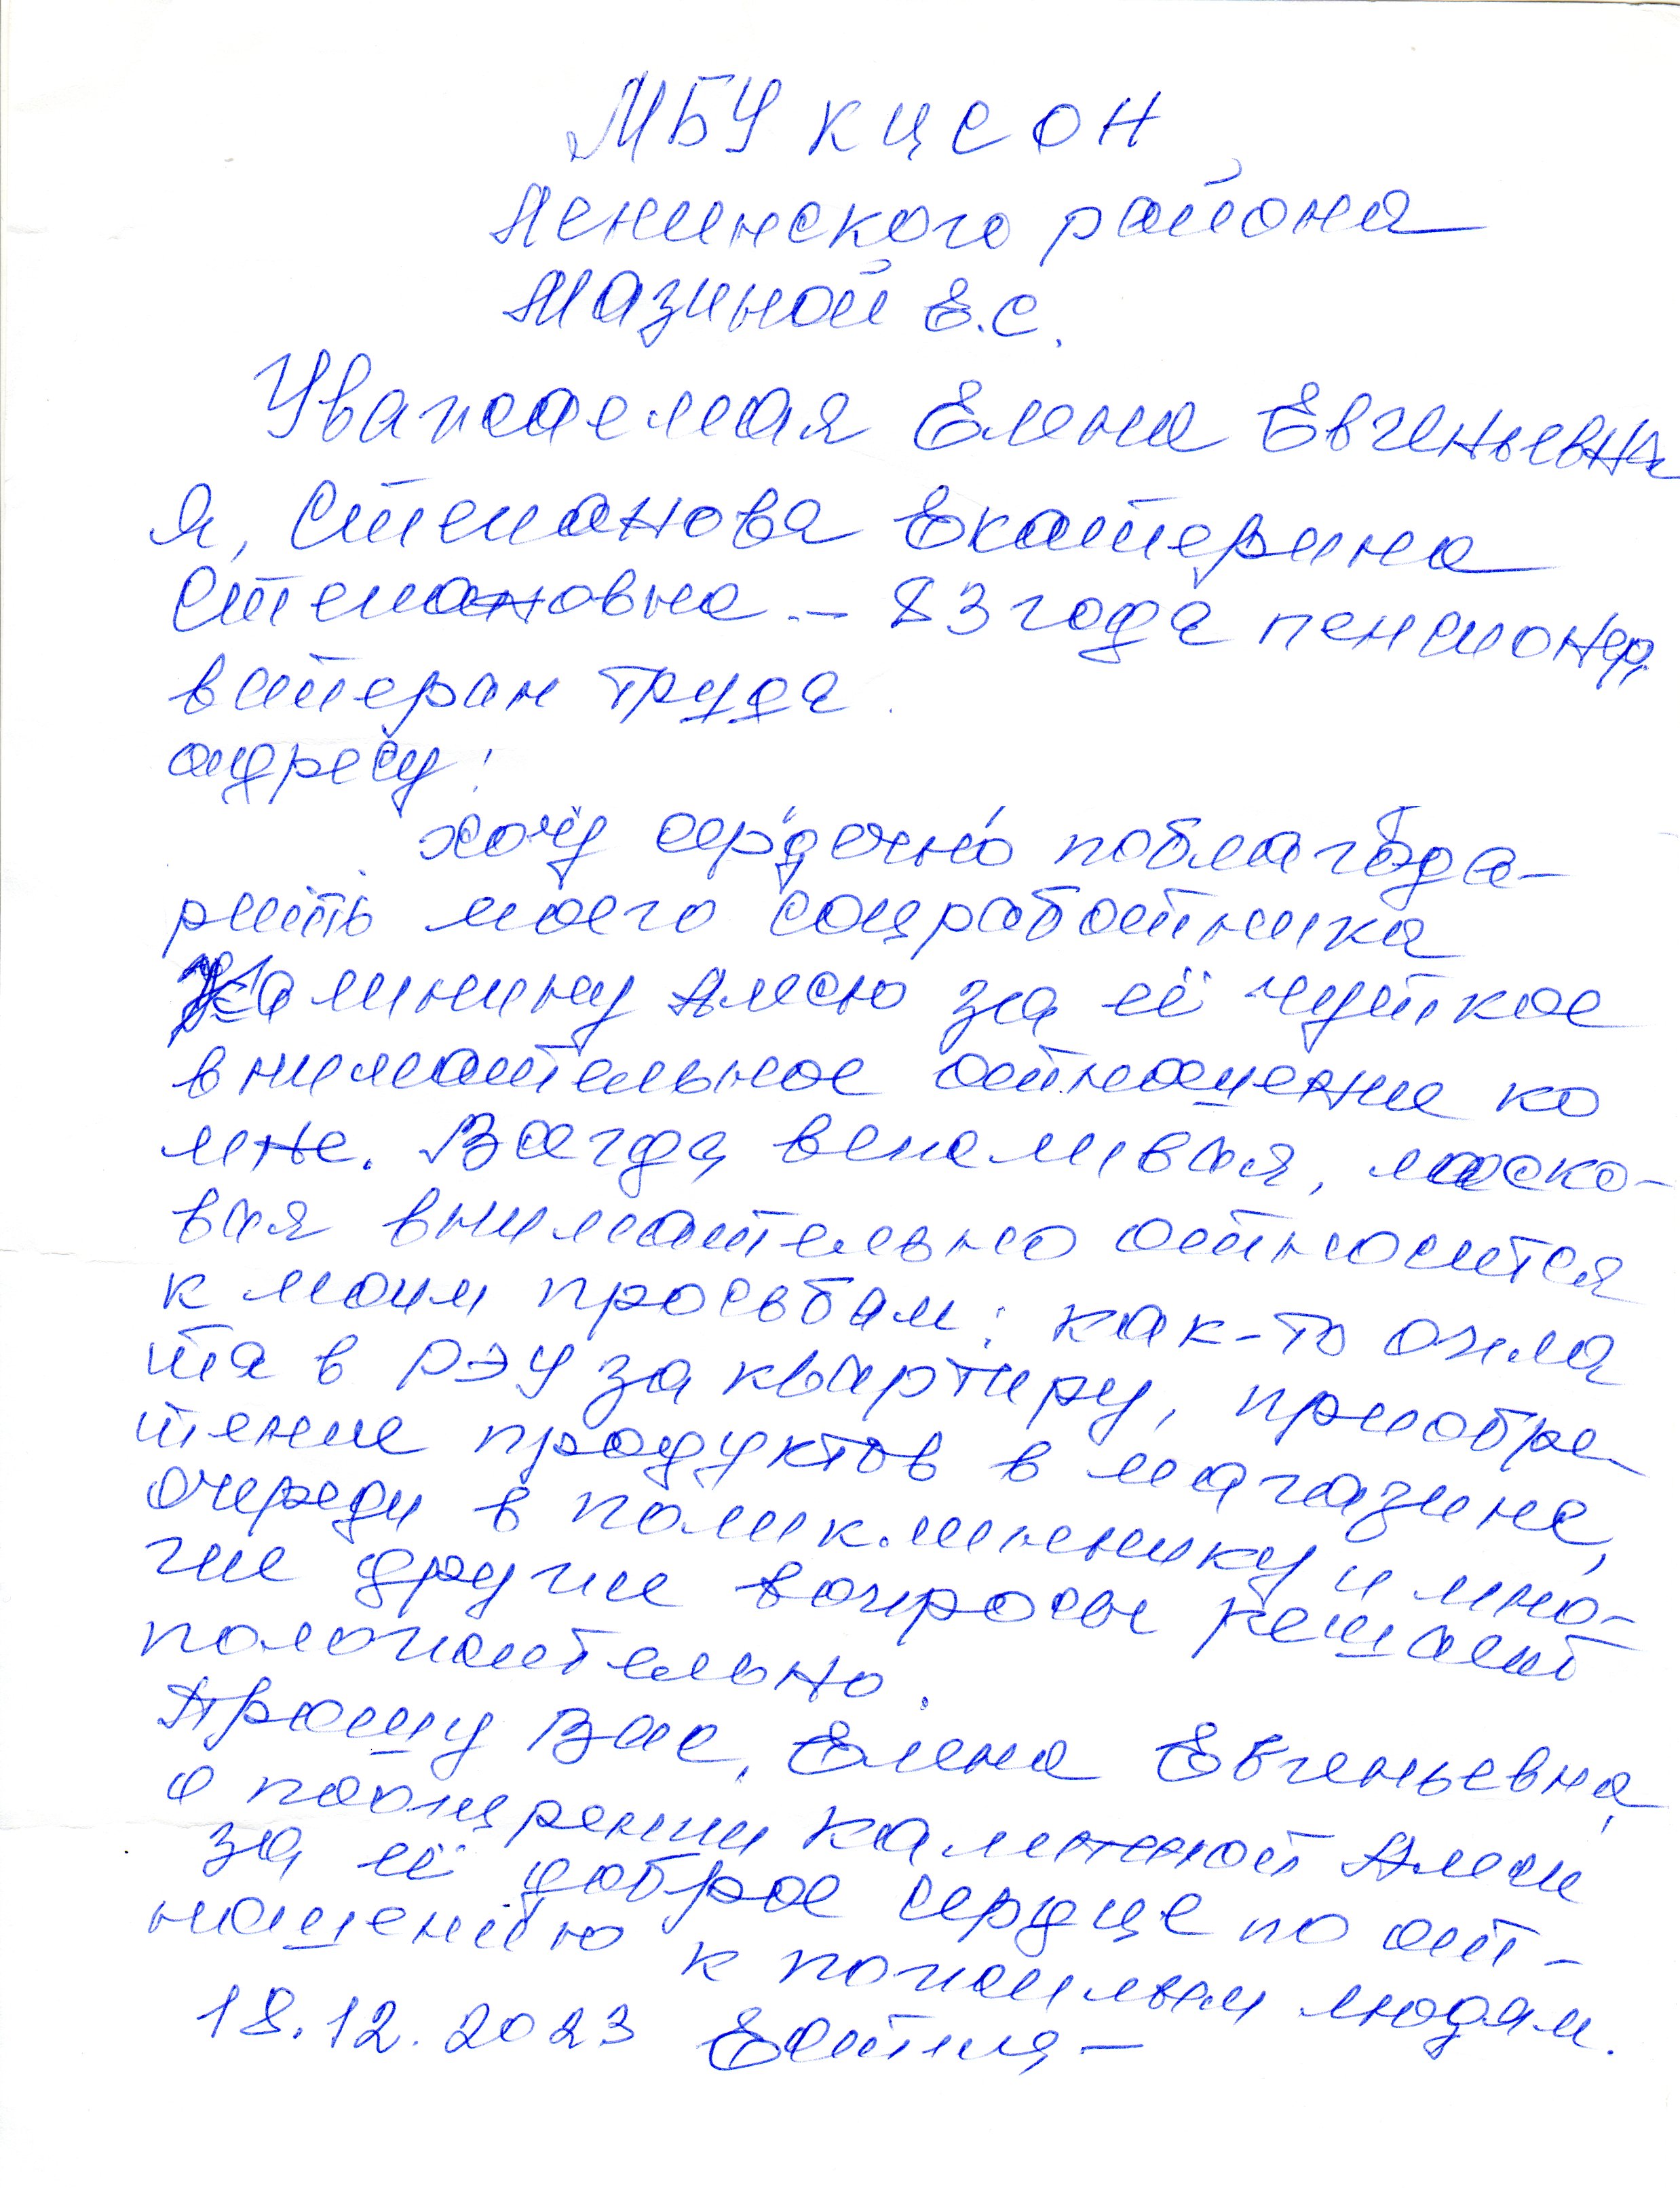 МБУ КЦСОН
Ленинского района
Мазиной Е.С.
Уважаемая Елена Евгеньевна
Я, Степанова Екатерина
Степановна – 83 года пенсионер,
ветеран труда
адресу:
хочу сердечно поблагода-
рить моего соцработника
Калинину Алсю за её чуткое
внимательное отношение ко
мне. Всегда вежливая, ласко-
вая внимательно относится
к моим просьбам: как-то опла
та в РЭУ за квартиру, приобре-
тение продуктов в магазине,
очереди в поликлиннику и мно-
гие другие вопросы решает
положительно.
Прошу Вас, Елена Евгеньевна,
о поощрении Калининой Алси
за её доброе сердце по от-
ношению к пожилым людям.
18.12.2023